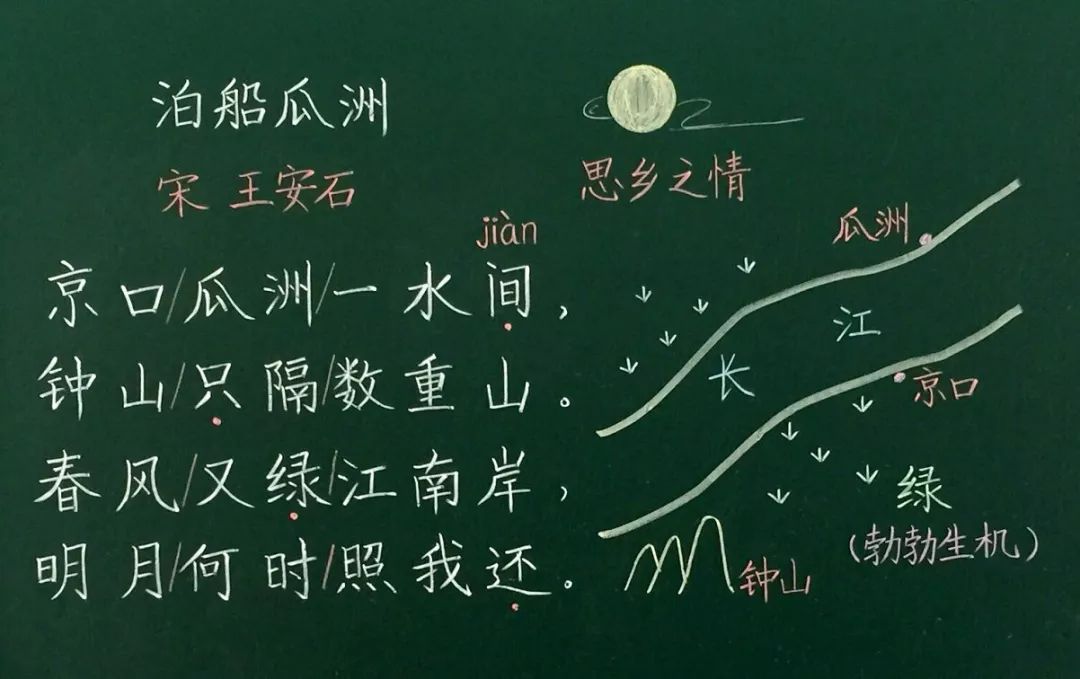 泊船瓜洲
宋 王安石
jiàn
京口/瓜洲/一水间，
钟山/只隔/数重山。
春风/又绿/江南岸，
明月/何时/照我还。
思乡之情
瓜洲
江
长
京口
绿
（勃勃生机）
钟山